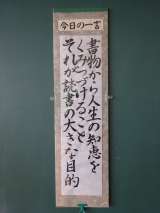 今日の一言
書物から人生の知恵を
くみとってけること
それが読書の大きな目的